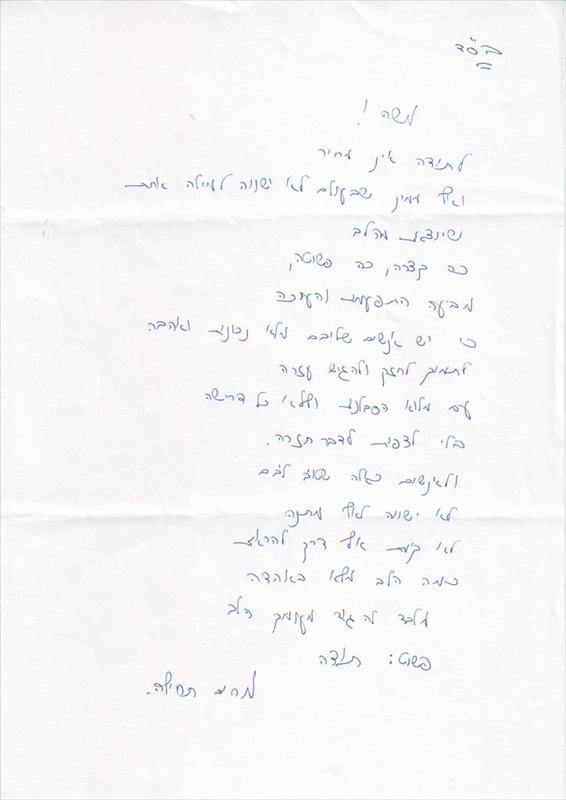 בס"ד
משה !
לתודה אין מחיר
ואף ממון שבעולם לא ישווה למילה אחת
שיוצאת מהלב
כה קצרה, כה פשוטה,
מביעה התפעמות והערכה
כי יש אנשים שליבם מלא נכונות ואהבה
לתמוך לחזק ולהגיש עזרה
עם מלוא הסבלנות וללא כל דרישה
בלי לצפות לדבר תמורה.
ולאנשים כאלה שטוב לבם
לא ישווה לאף מתנה
לא קיימת אף דרך להראות
כמה הלב מלא באהדה
מלבד להגיד מעומק הלב
פשוט: תודה
מרים תהילה.